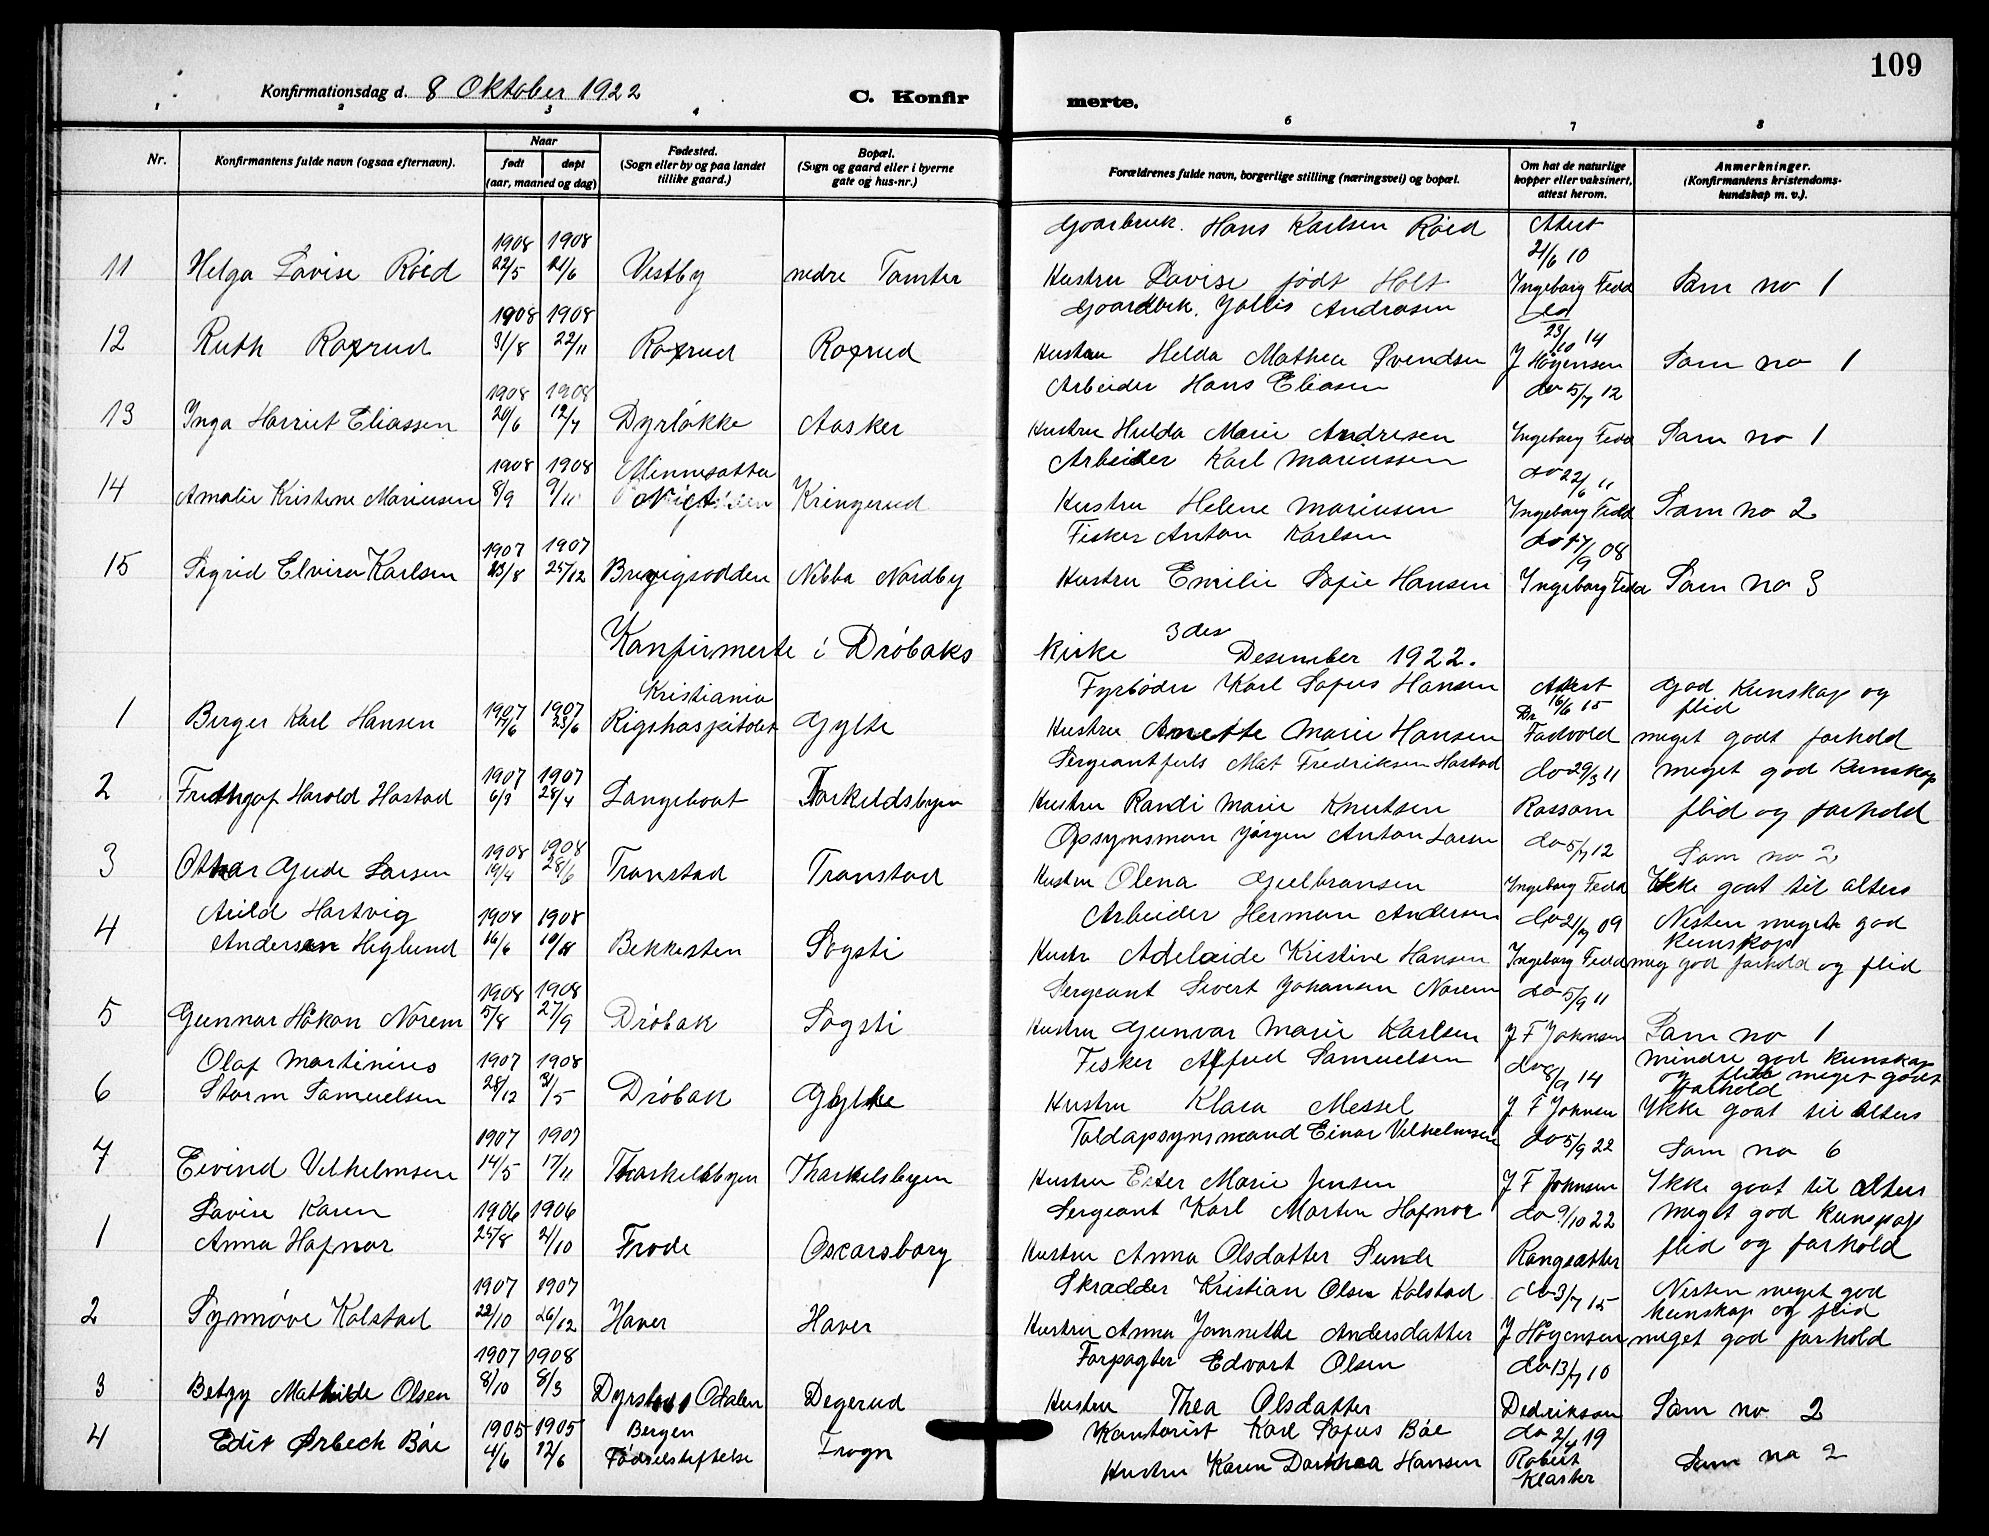 109
Konfirmationsdag d. 8 Oktober 1922
C. Konfir
merte.
1 2 3 4 6 7 8
Nr.
Konfirmantens fulde navn (ogsaa efternavn).
Naar
født døpt
(aar, maaned og dag)
Fødested.
(Sogn eller by og paa landet
tillike gaard.)
Bopæl.
(Sogn og gaard eller i byerne
gate og hus-nr.)
Forældrenes fulde navn, borgerlige stilling (næringsvei) og bopæl.
Om hat de naturlige
kopper eller vaksinert,
attest herom.
Anmerkninger.
(Konfirmantens kristendoms-
kundskap m. v.).
1908 1908 Gaarbruk. Hans Karlsen Røed Attest
21/6 10
11 Helga Lovise Røed 22/5 21/6 Vestby nedre Tomter Hustru Lovise født Holt Ingeborg Fedd Som no 1
1908 1908 Gaardbruk. Andrasen do
23/10 14
12 Ruth Roxrud 31/8 22/11 Roxrud Roxrud Hustru Helda Mathea Svendsen J Høyensen Som no 1
1908 1908 Arbeider Hans Eliasen do 5/7 12
13 Inga Harriet Eliassen 20/6 12/7 Dyrløkke Aasker Hustru Hulda Marie Andresen Ingeborg Fedd Som no 1
1908 1908 Arbeider Karl Mariussen do 22/6 11
14 Amalie Kristine Mariusen 8/9 9/11 Kringerud Hustru Helene Mariusen Ingeborg Fedd Som no 2
1907 1907 Fisker Anton Karlsen do 17/9 08
15 Sigrid Elvira Karlsen 23/8 25/12 Nebba Nordby Hustru Emilie Sofie Hansen Ingeborg Fedd Som no 3
Konfirmerte i Drøbaks kirke 3des Desember 1922.
Kristiania Fyrbøder Karl Sofus Hansen Attest 16/6 15 God kunskap og
flid
1 Birger Karl Hansen 1907 17/6 1907 23/6 Rigshospitalet Gylte Hustru Anette Marie Hansen Dr Fadvold meget godt forhold
1907 1907 Sergeantfuls Mat Fredriksen Hastad do 29/3 11 meget god kunskap
2 Fridthjof Harold Hastad 6/3 28/4 Langebaat Torkeldsbyen Hustru Randi Marie Knutsen Rossom flid og forhold
1908 1908 Opsynsman Jørgen Anton Larsen do 5/7 12 Som no 2
3 Othar Gude Larsen 19/4 28/6 Tronstad Tronstad Hustru Olena Gulbransen Ingeborg Fedd Ikke gaat til alters
Arild Hartvig 1908 1908 Arbeider Herman Andersen do 21/9 09 Nesten meget god
kunskap
4 Andersen Heglund 16/6 Bekkesten Sogsti Hustr Adelaide Kristine Hansen Ingeborg Fedd meg god forhold og flid
1908 1908 Sergeant Sivert Johansen Norem do 5/9 11
5 Gunnar Håkon Norem 5/8 27/9 Drøbak Sogsti Hustru Gunvar Marie Karlsen J F Johnsen Som no 1
Olaf Martinius 1907 1908 Fisker Alfred Samuelsen do 8/9 14 mindre god kunskap
og flid meget godt
forhold
6 Storm Samuelsen 28/12 31/5 Drøbak Gylte Hustru Klara Messel J F Johnsen Ikke gaat til alters
1907 1907 Toldopsynsmand Einar Vilhelmsen do 5/9 22 Som no 6
7 Eivind Vilhelmsen 14/5 17/11 Thorkelsbyen Thorkelsbyen Hustru Ester Marie Jensen J F Johnsen Ikke gaat til alters
Lovise Karen 1906 1906 Sergeant Karl Morten Hafnor do 9/10 22 meget god kunspap
1 Anna Hafnor 25/8 21/10 Frode Oscarsborg Hustru Anna Olsdatter Sunde Rangsætter flid og forhold
1907 1907 Skrædder Kristian Olsen Kolstad do 3/7 15 Nesten meget god
kunskap og flid
2 Synnøve Kolstad 22/10 26/12 Haver Haver Hustru Anna Jonnette Andersdatter J Høyensen meget god forhold
1907 1908 Forpagter Edvart Olsen do 13/7 10
3 Betzy Mathilde Olsen 8/10 8/3 Odalen Degerud Hustru Thea Olsdatter Dedrikson Som no 2
1905 1905 Bergen Kontorist Karl Sofus Bøe do 2/4 19
4 Edit Ørbech Bøe 4/6 12/6 Fødselstiftelse Frogn Hustru Karen Dorthea Hansen Robert
Klaster Som no 2